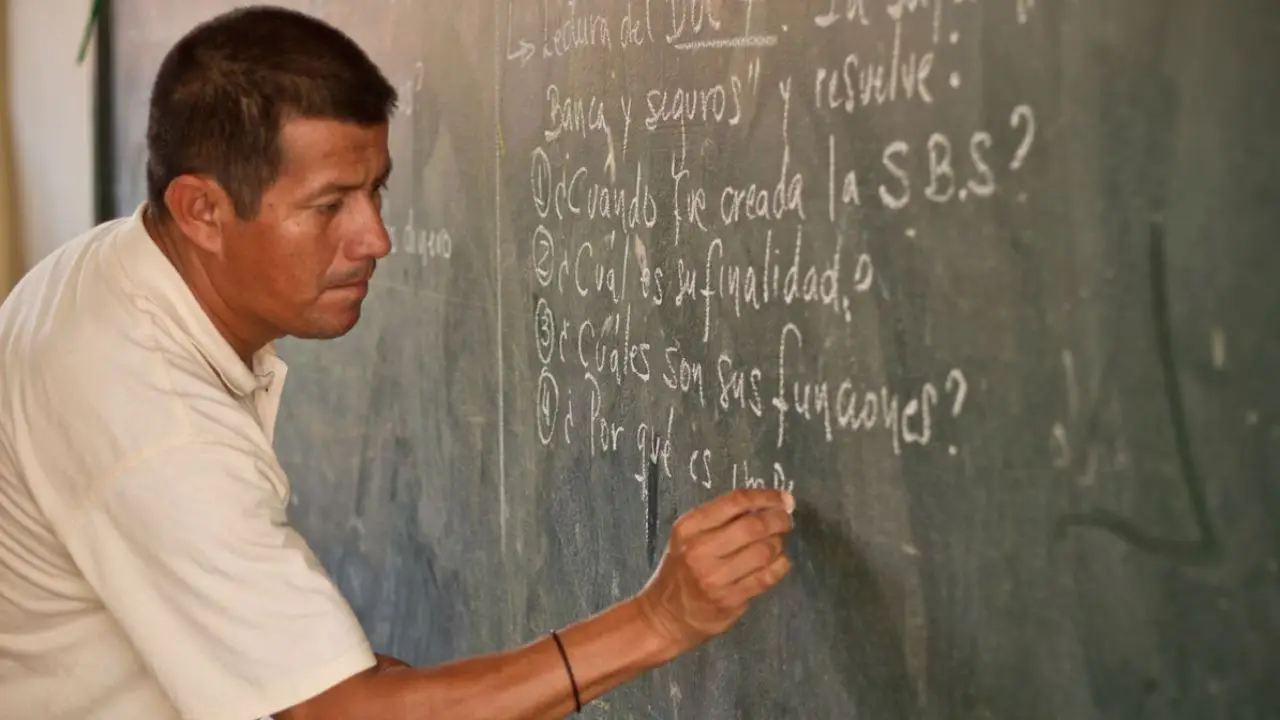 → Lectura del DOC 4. "La Super
Banca y seguros" y resuelve:
① ¿Cuándo fue creada la S.B.S?
② ¿Cuál es su finalidad?
③ ¿Cuáles son sus funciones?
④ ¿Por qué es imp
dinero